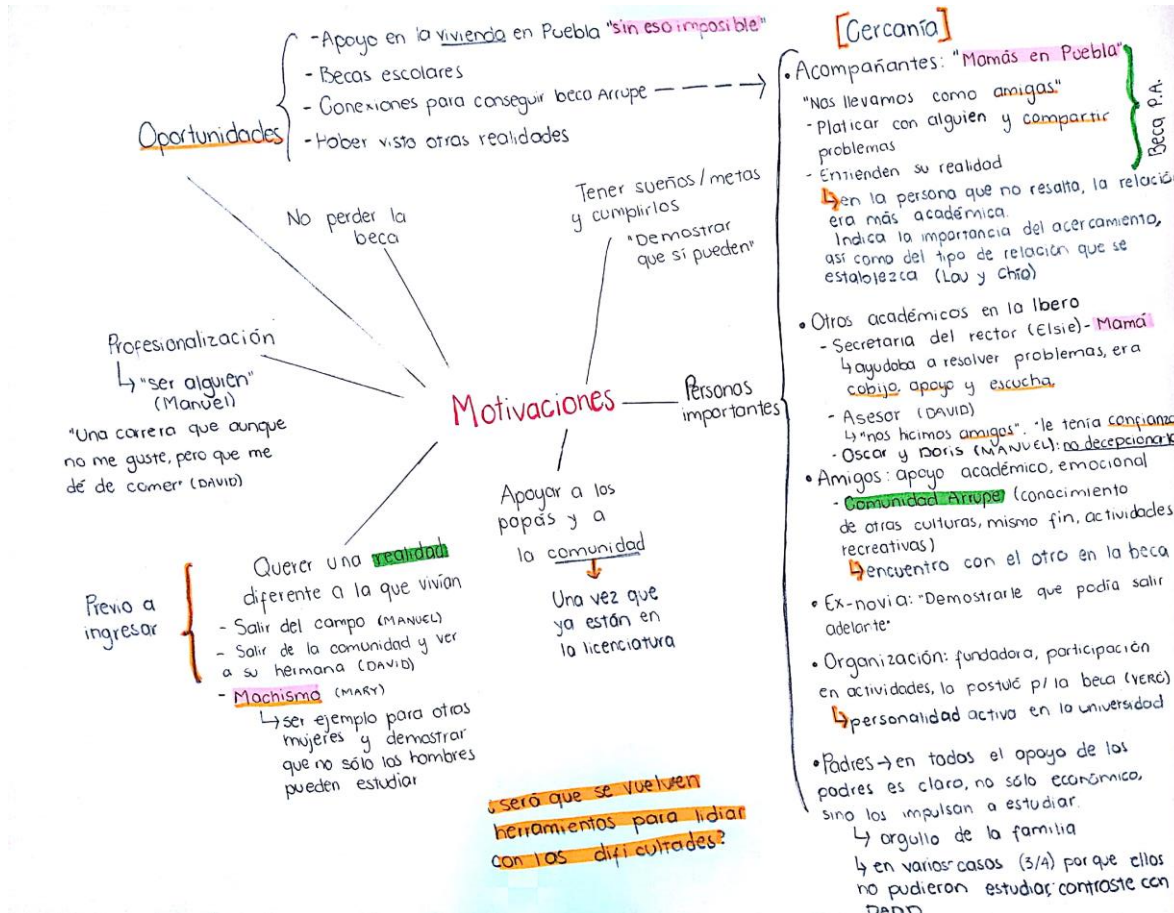 Oportunidades
- Apoyo en la vivienda en Puebla "sin eso imposible"
- Becas escolares
- Conexiones para conseguir beca Arrupe
- Haber visto otras realidades
No perder la
beca
Tener sueños/metas
y cumplirlos
"Demostrar
que sí pueden"
Profesionalización
↳ "ser alguien"
(Manuel)
"Una carrera que aunque
no me guste, pero que me
dé de comer" (DAVID)
Motivaciones
Personas
importantes
Apoyar a los
papás y a
la comunidad
Una vez que
ya están en
la licenciatura
Previo a
ingresar
Querer una realidad
diferente a la que vivían
- Salir del campo (MANUEL)
- Salir de la comunidad y ver
a su hermana (DAVID)
- Machismo (MARY)
↳ ser ejemplo para otras
mujeres y demostrar
que no sólo los hombres
pueden estudiar
¿será que se vuelven
herramientas para lidiar
con las dificultades?
[Cercanía]
• Acompañantes: "Mamás en Puebla"
"Nos llevamos como amigas"
- Platicar con alguien y compartir
problemas
- Entienden su realidad
Beca P.A.
↳ en la persona que no resalto, la relació
era más académica.
Indica la importancia del acercamiento,
así como del tipo de relación que se
establezca (Lau y Chío)
• Otros académicos en la Ibero
- Secretaria del rector (Elsie) - Mamá
↳ ayudaba a resolver problemas, era
cobijo, apoyo y escucha,
- Asesor (DAVID)
↳ "nos hicimos amigos". "le tenía confianza
- Oscar y Doris (MANUEL): no decepcionarl
• Amigos: apoyo académico, emocional
- Comunidad Arrupe (conocimiento
de otras culturas, mismo fin, actividades
recreativas)
↳ encuentro con el otro en la beca
• Ex-novia: "Demostrarle que podía salir
adelante"
• Organización: fundadora, participación
en actividades, la postuló p/ la beca (VERO)
↳ personalidad activa en la universidad
• Padres → en todos el apoyo de los
padres es claro, no sólo económico,
sino los impulsan a estudiar.
↳ orgullo de la familia
↳ en varios casos (3/4) porque ellos
no pudieron estudiar, contraste con